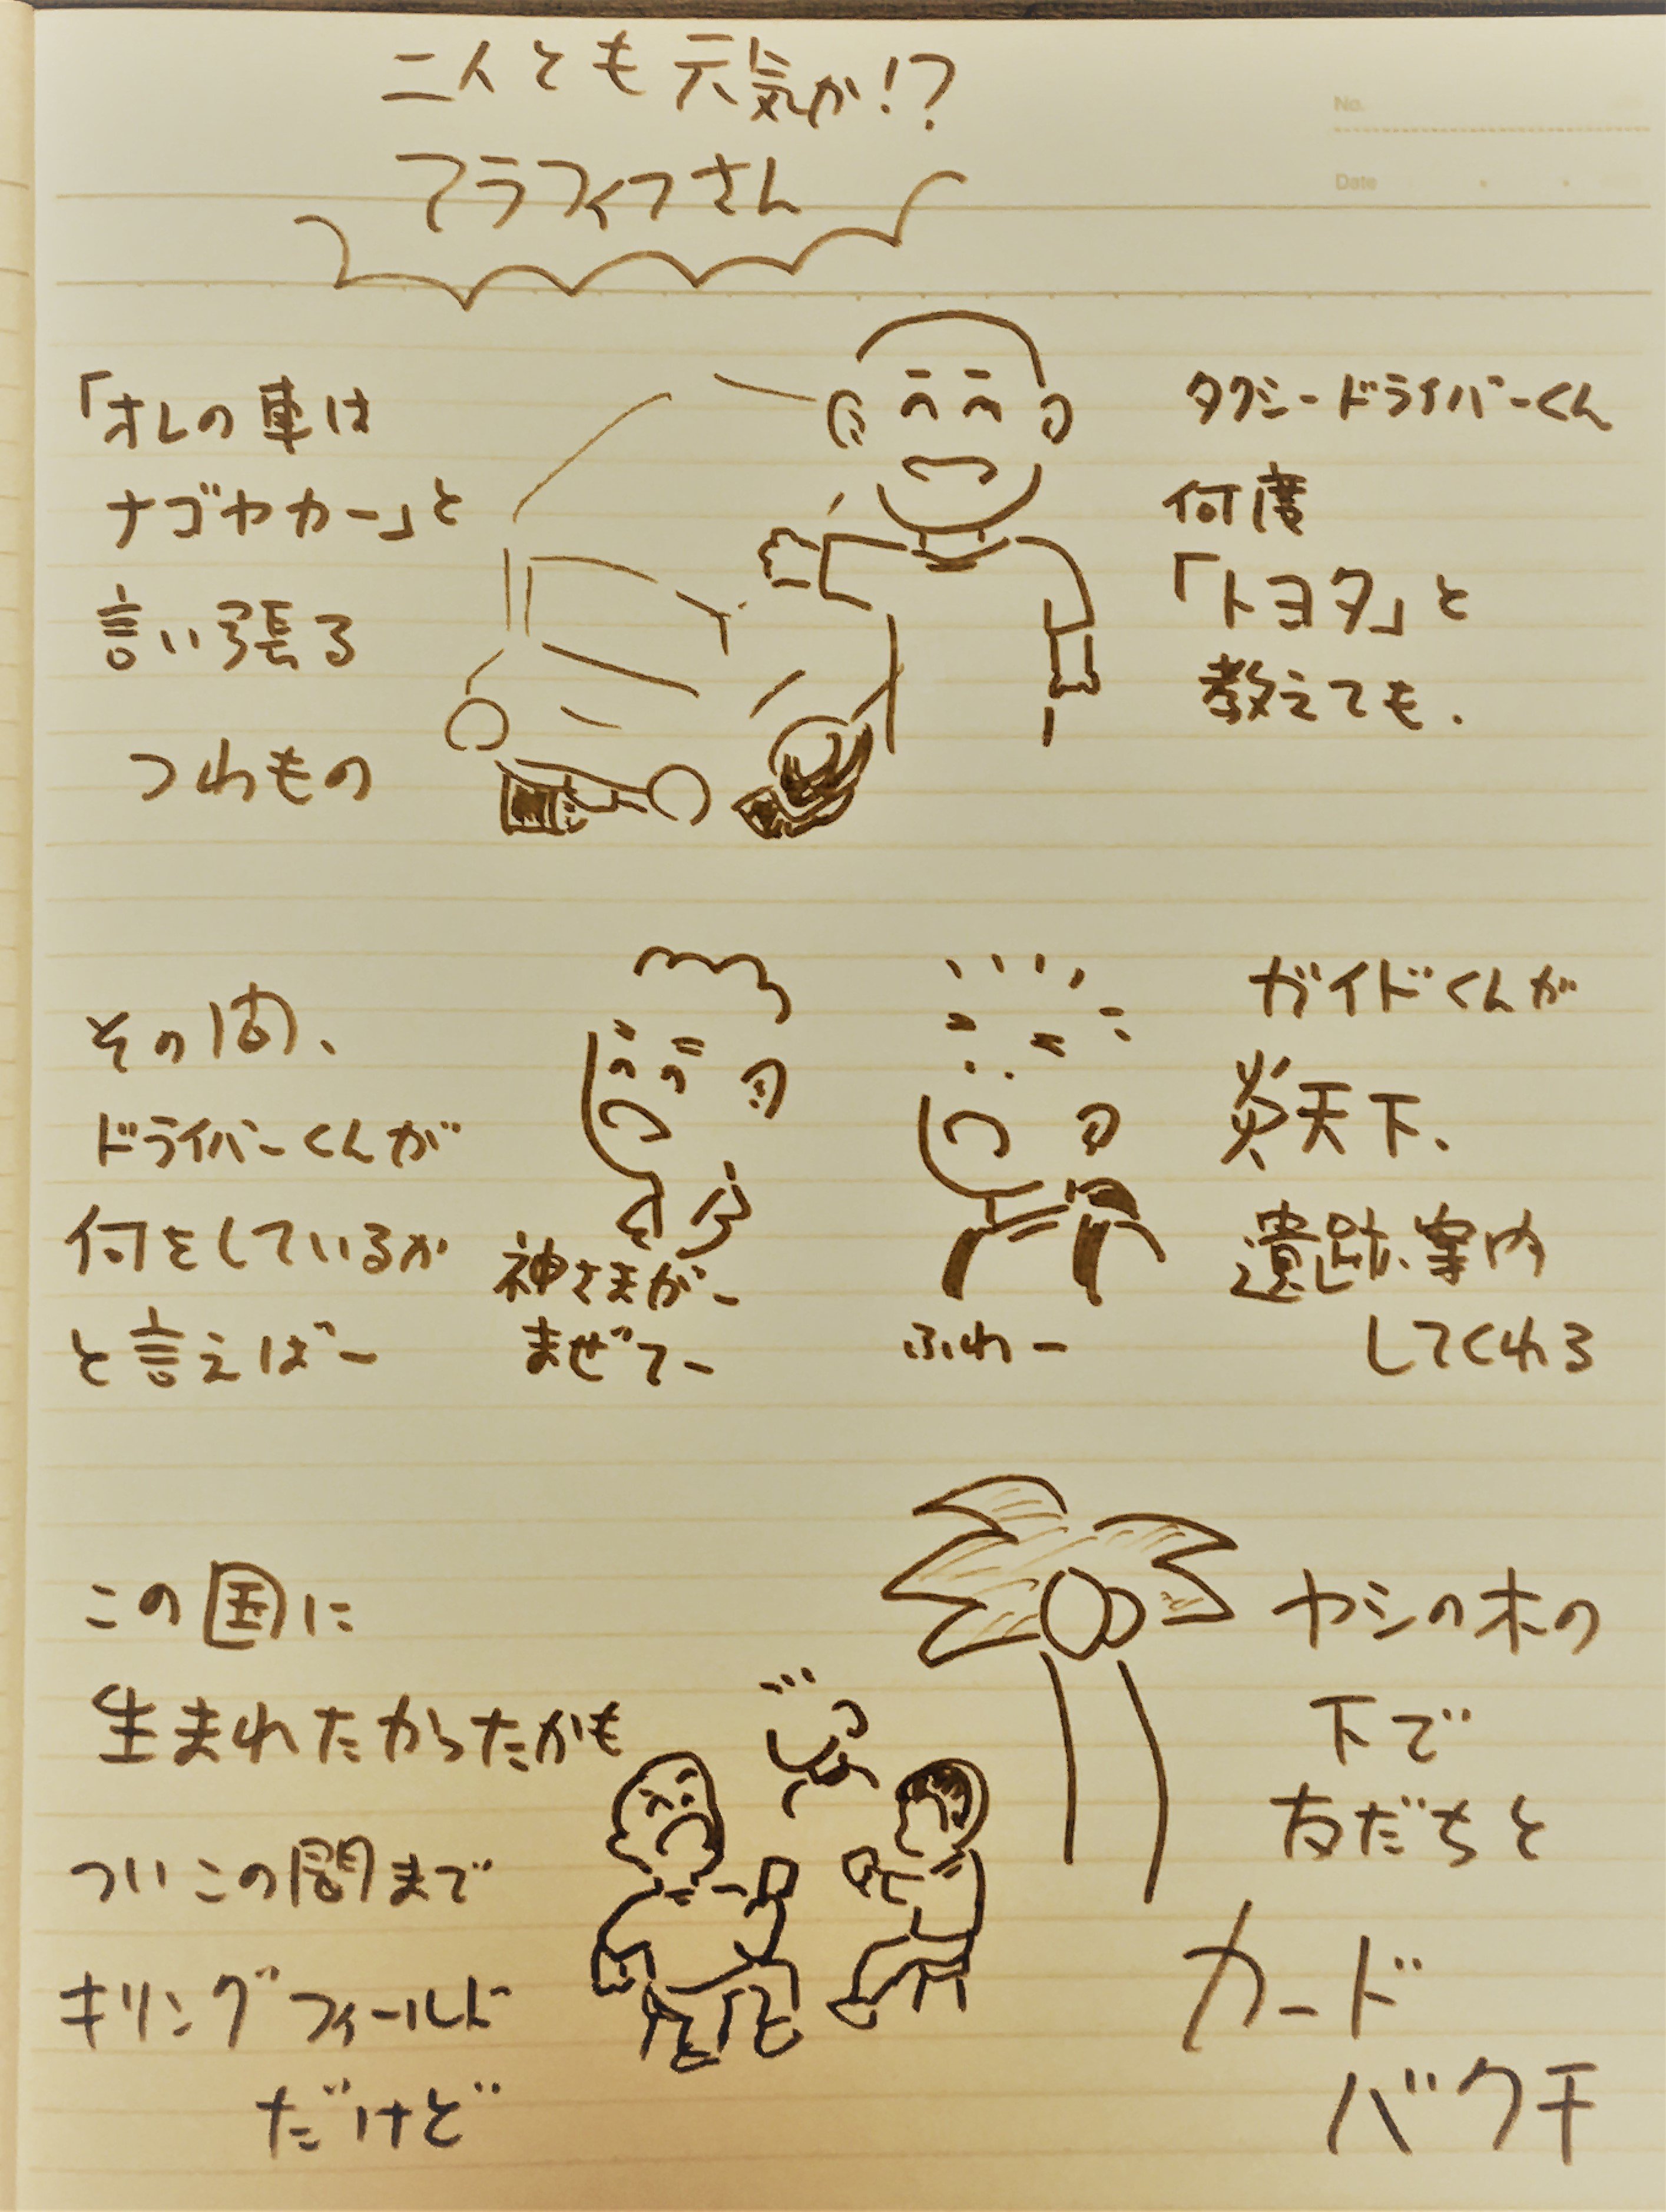 二人とも元気か!?
アラフィフさん
No.
Date
タクシードライバーくん
何度
「トヨタ」と
教えても、
「オレの車は
ナゴヤカー」と
言い張る
つわもの
ガイドくんが
炎天下、
遺跡案内
してくれる
ふわー
神さまがー
まぜてー
その間、
ドライバーくんが
何をしているか
と言えばー
ヤシの木の
下で
友だちと
カード
バクチ
この国に
生まれたかったかも
ついこの間まで
キリングフィールド
だけど